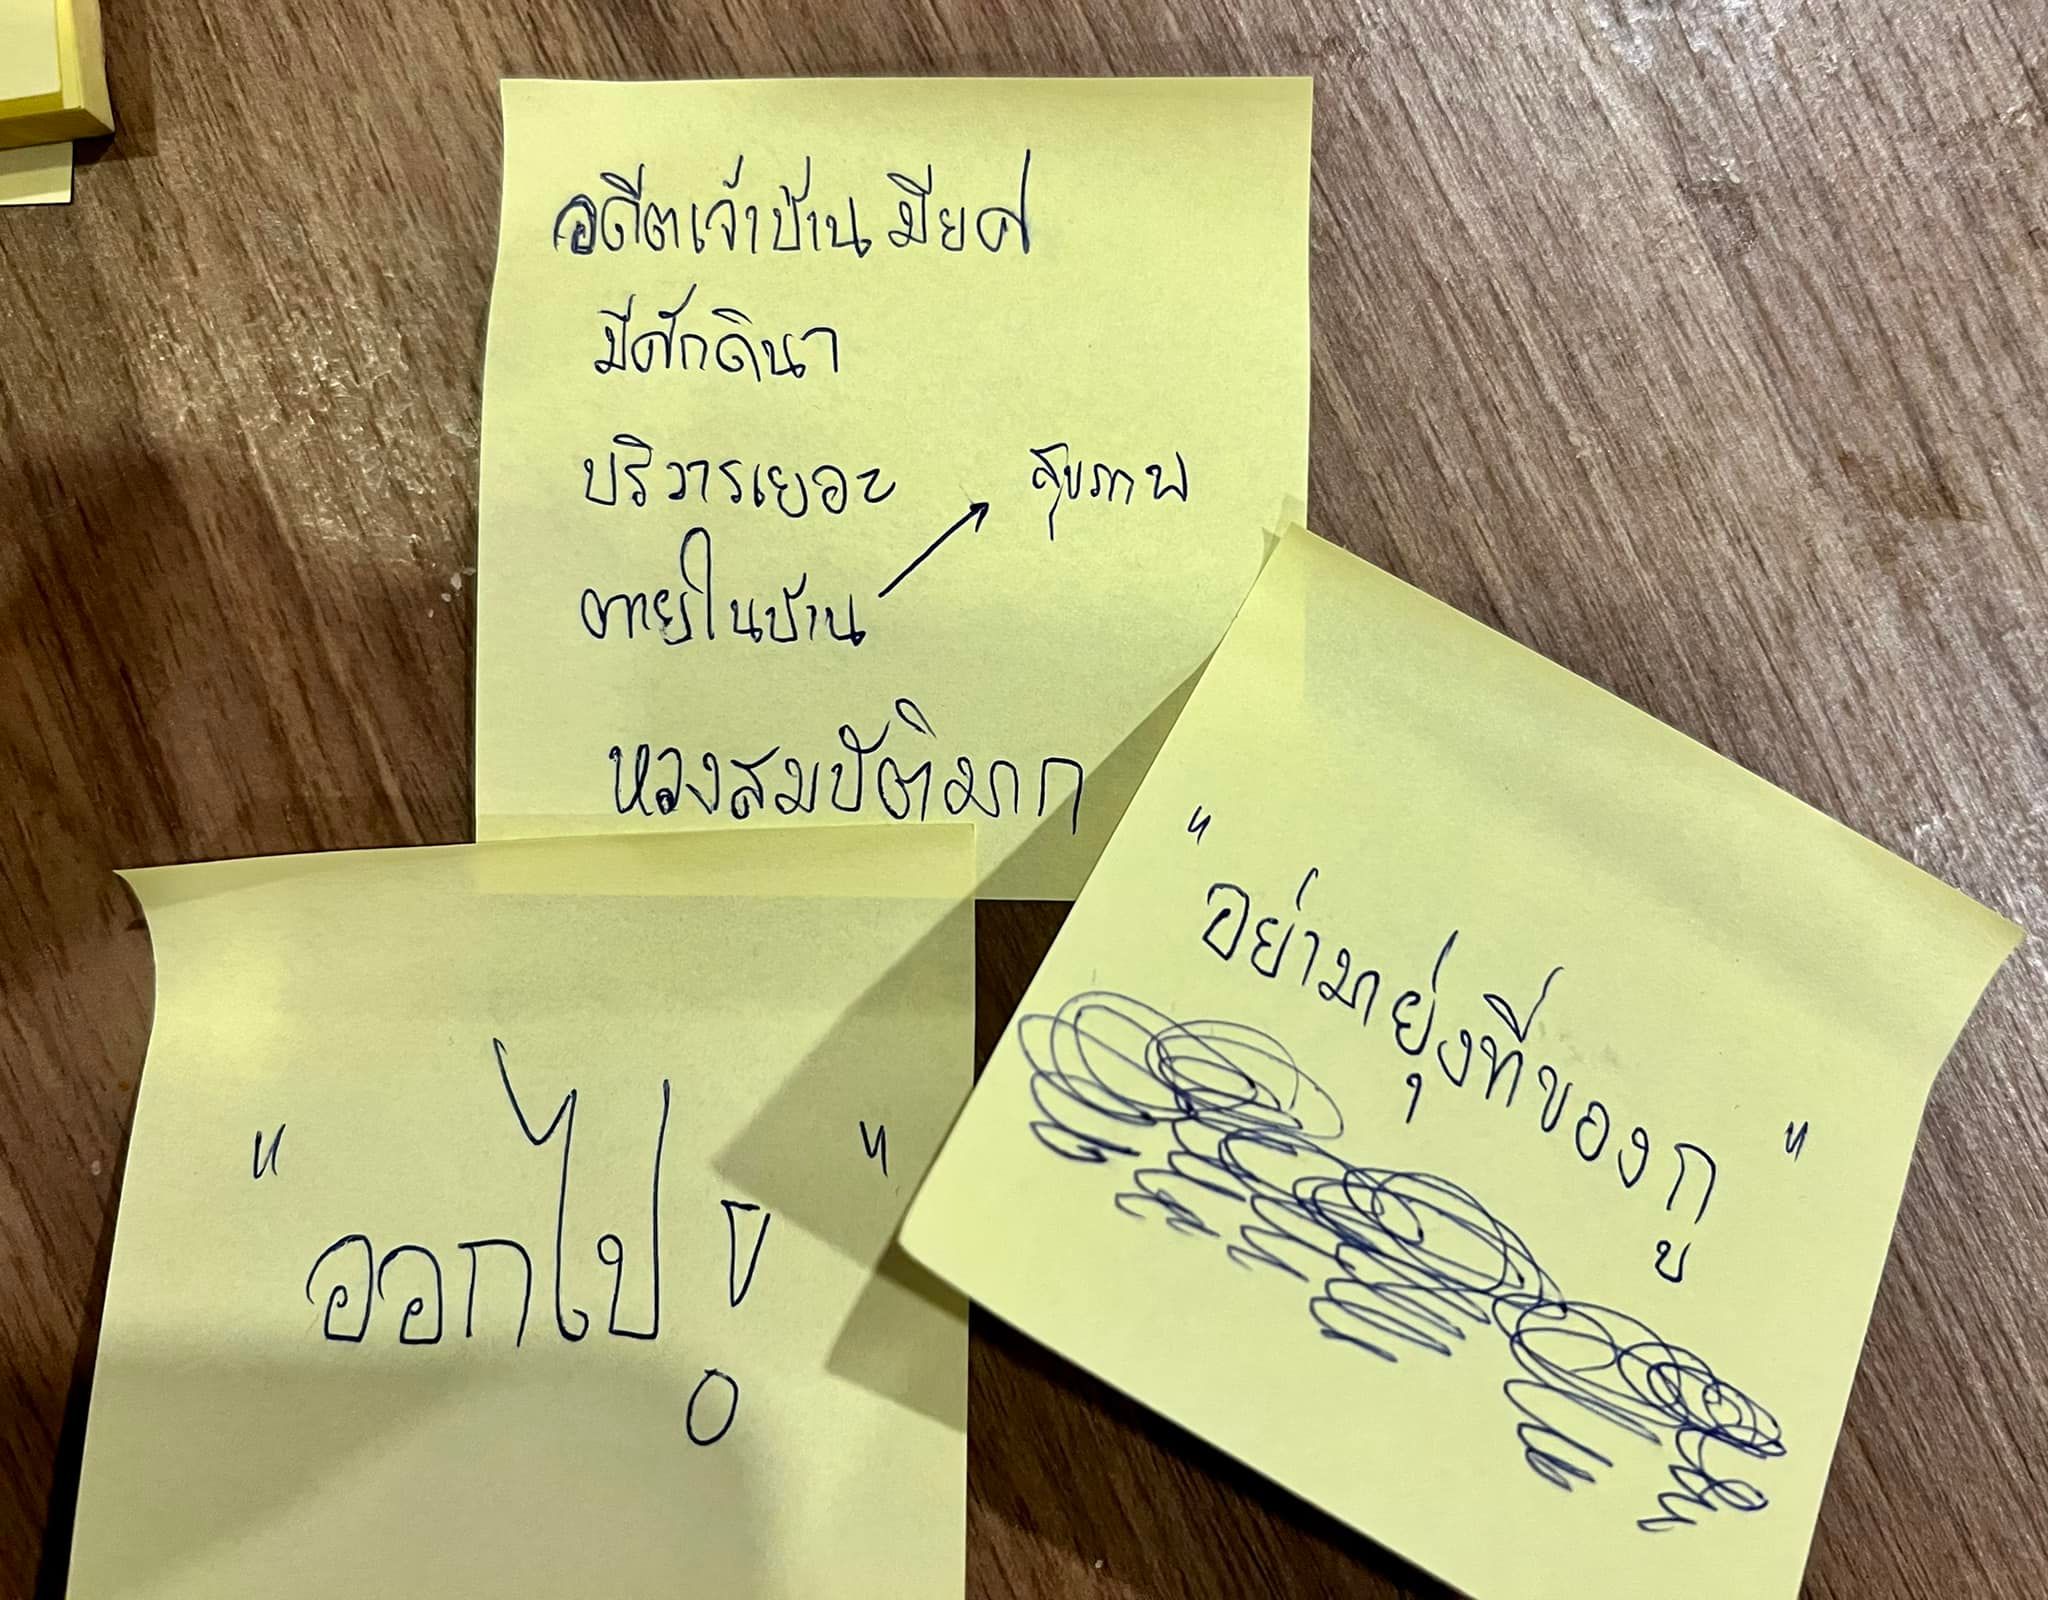 อดีตเจ้าบ้าน มียศ
มีศักดินา
บริวารเยอะ
ตายในบ้าน → สุขภาพ
หวงสมบัติมาก
"อย่ามายุ่งที่ของกู"
"ออกไป!"